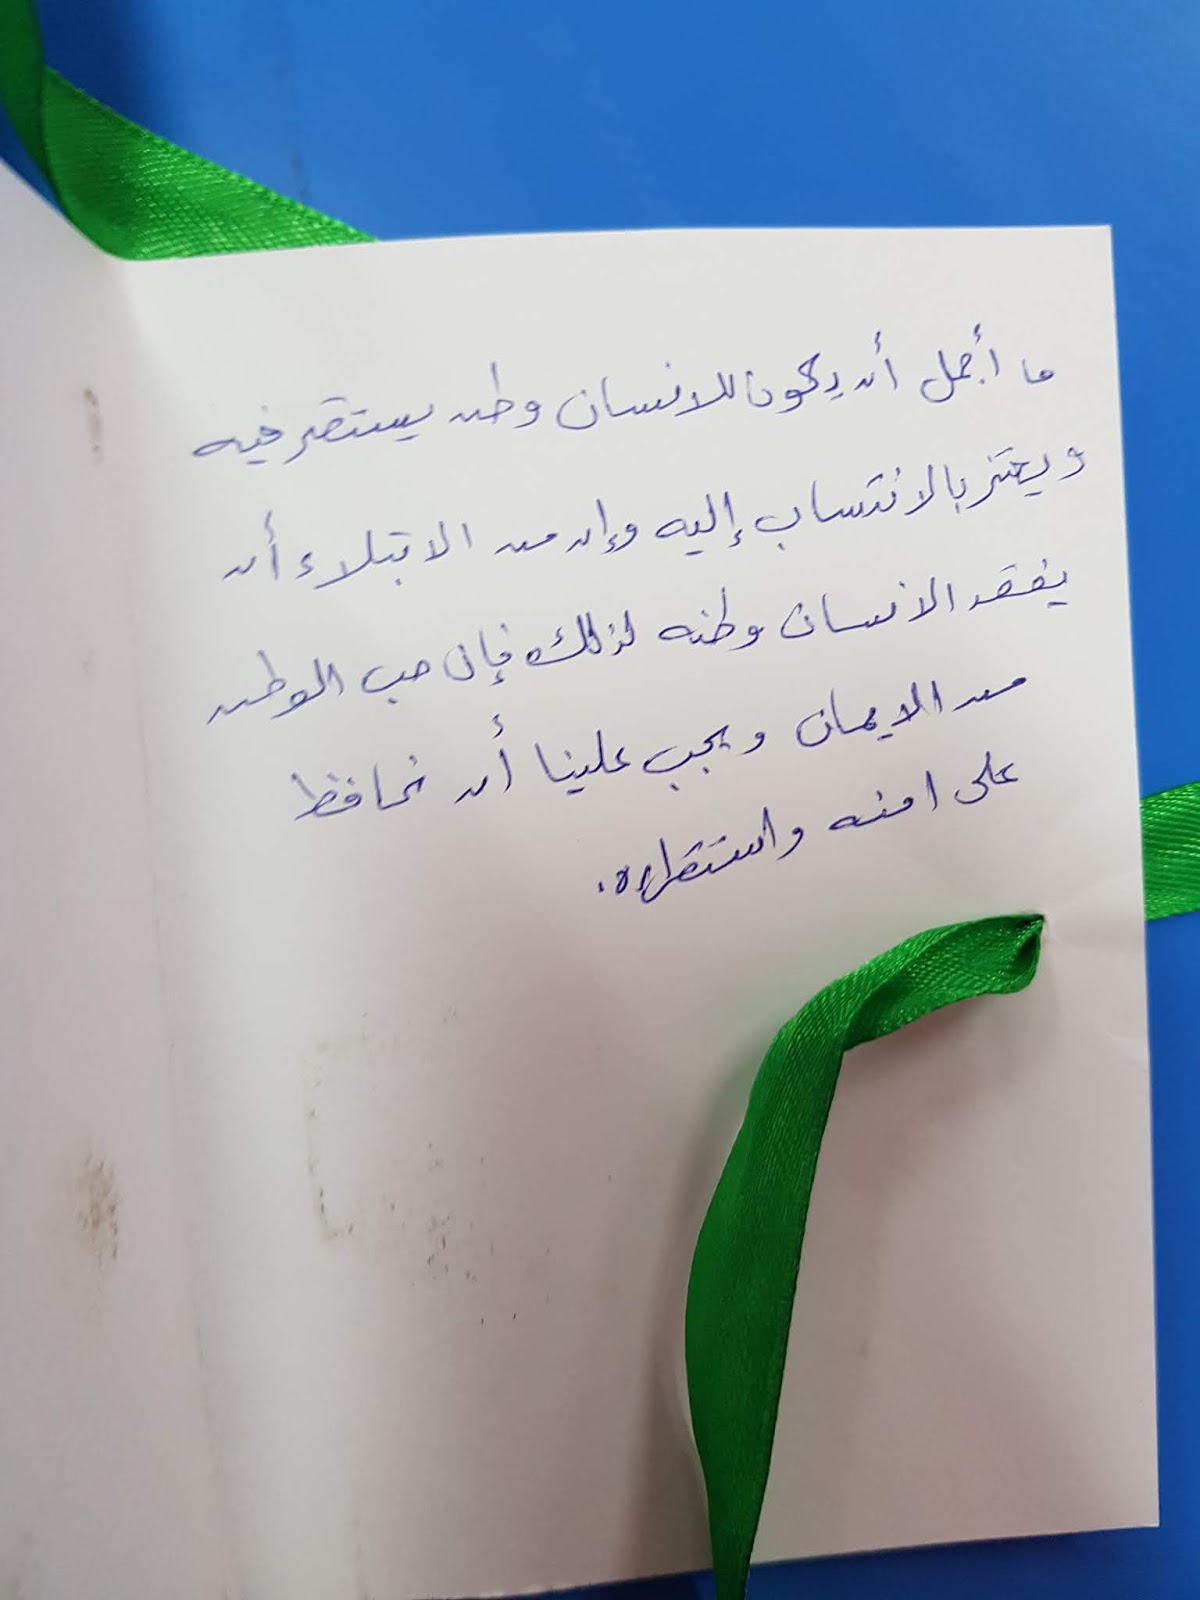 ما أجمل أن يكون للانسان وطن يستقر فيه
ويعتز بالانتساب إليه وإن من الابتلاء أن
يفقد الانسان وطنه لذلك فإن حب الوطن
من الايمان ويجب علينا أن نحافظ
على امنه واستقراره.